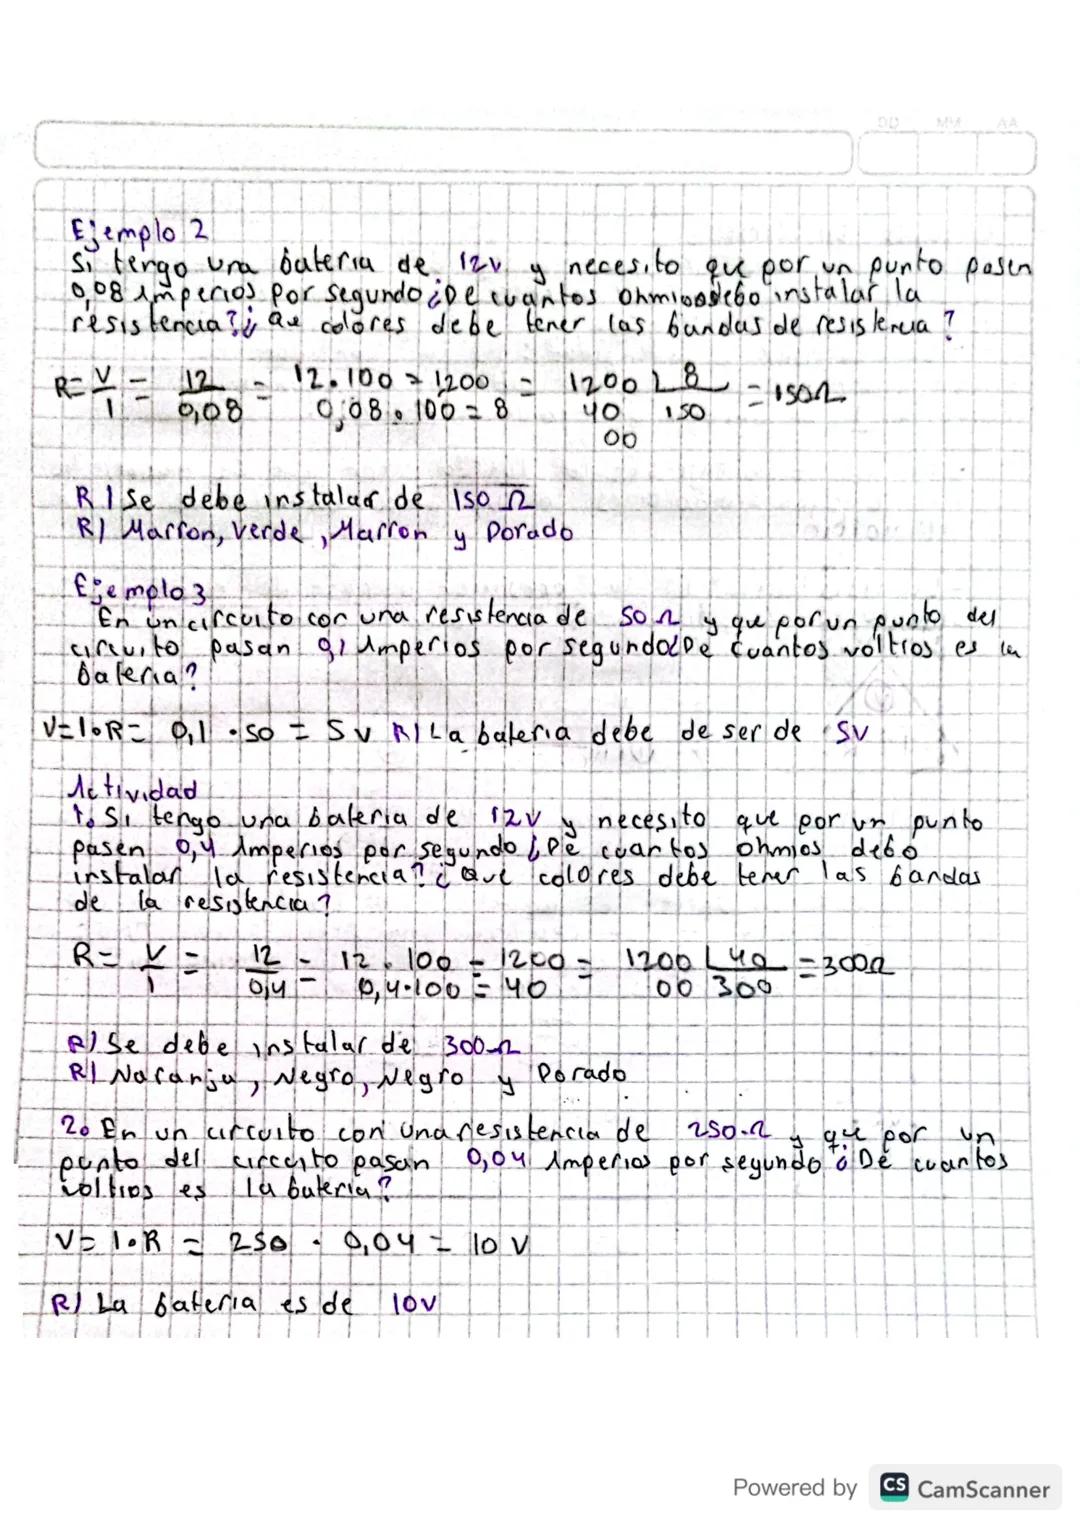 DD MM AA
Ejemplo 2
Si tengo una bateria de 12v y necesito que por un punto pasen
0,08 Amperios por segundo ¿De cuantos Ohmios debo instalar la
resistencia? ¿Que colores debe tener las bandas de resistencia?
R= V/I = 12/0,08 = 12.100 = 1200 / 0,08.100 = 8 = 1200 8 = 150Ω
40 150
00
R/ Se debe instalar de 150 Ω
R/ Marron, Verde, Marron y Dorado
Ejemplo 3
En un circuito con una resistencia de 50 Ω y que por un punto del
circuito pasan 0,1 Amperios por segundo ¿De cuantos voltios es la
bateria?
V=I.R= 0,1 . 50 = 5v R/ La bateria debe de ser de 5V
Actividad
1. Si tengo una bateria de 12V y necesito que por un punto
pasen 0,4 Amperios por segundo ¿De cuantos ohmios debo
instalar la resistencia? ¿Que colores debe tener las bandas
de la resistencia?
R= V/I = 12/0,4 = 12.100 = 1200 / 0,4.100 = 40 = 1200 40 = 300Ω
00 300
R/ Se debe instalar de 300Ω
R/ Naranja, Negro, Negro y Dorado
2. En un circuito con una resistencia de 250Ω y que por un
punto del circuito pasan 0,04 Amperios por segundo ¿De cuantos
voltios es la bateria?
V= I.R = 250 . 0,04 = 10 V
R/ La bateria es de 10v
Powered by CS CamScanner